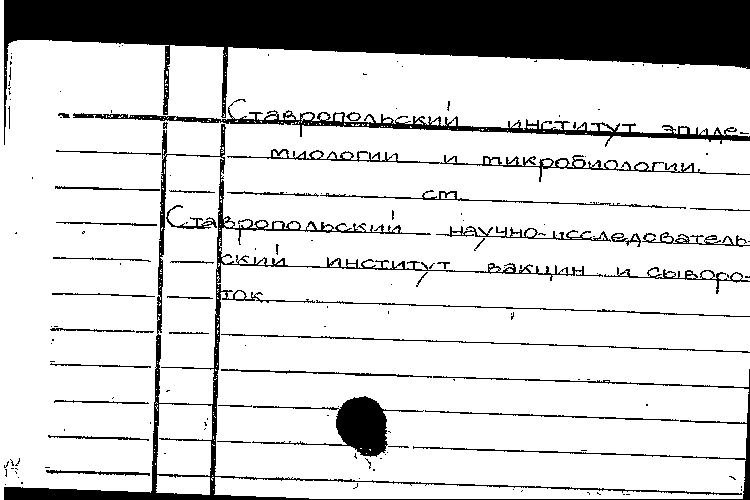 Ставропольский институт эпиде-
миологии и микробиологии.
см.
Ставропольский научно-исследователь-
ский институт вакцин и сыворо-
ток.